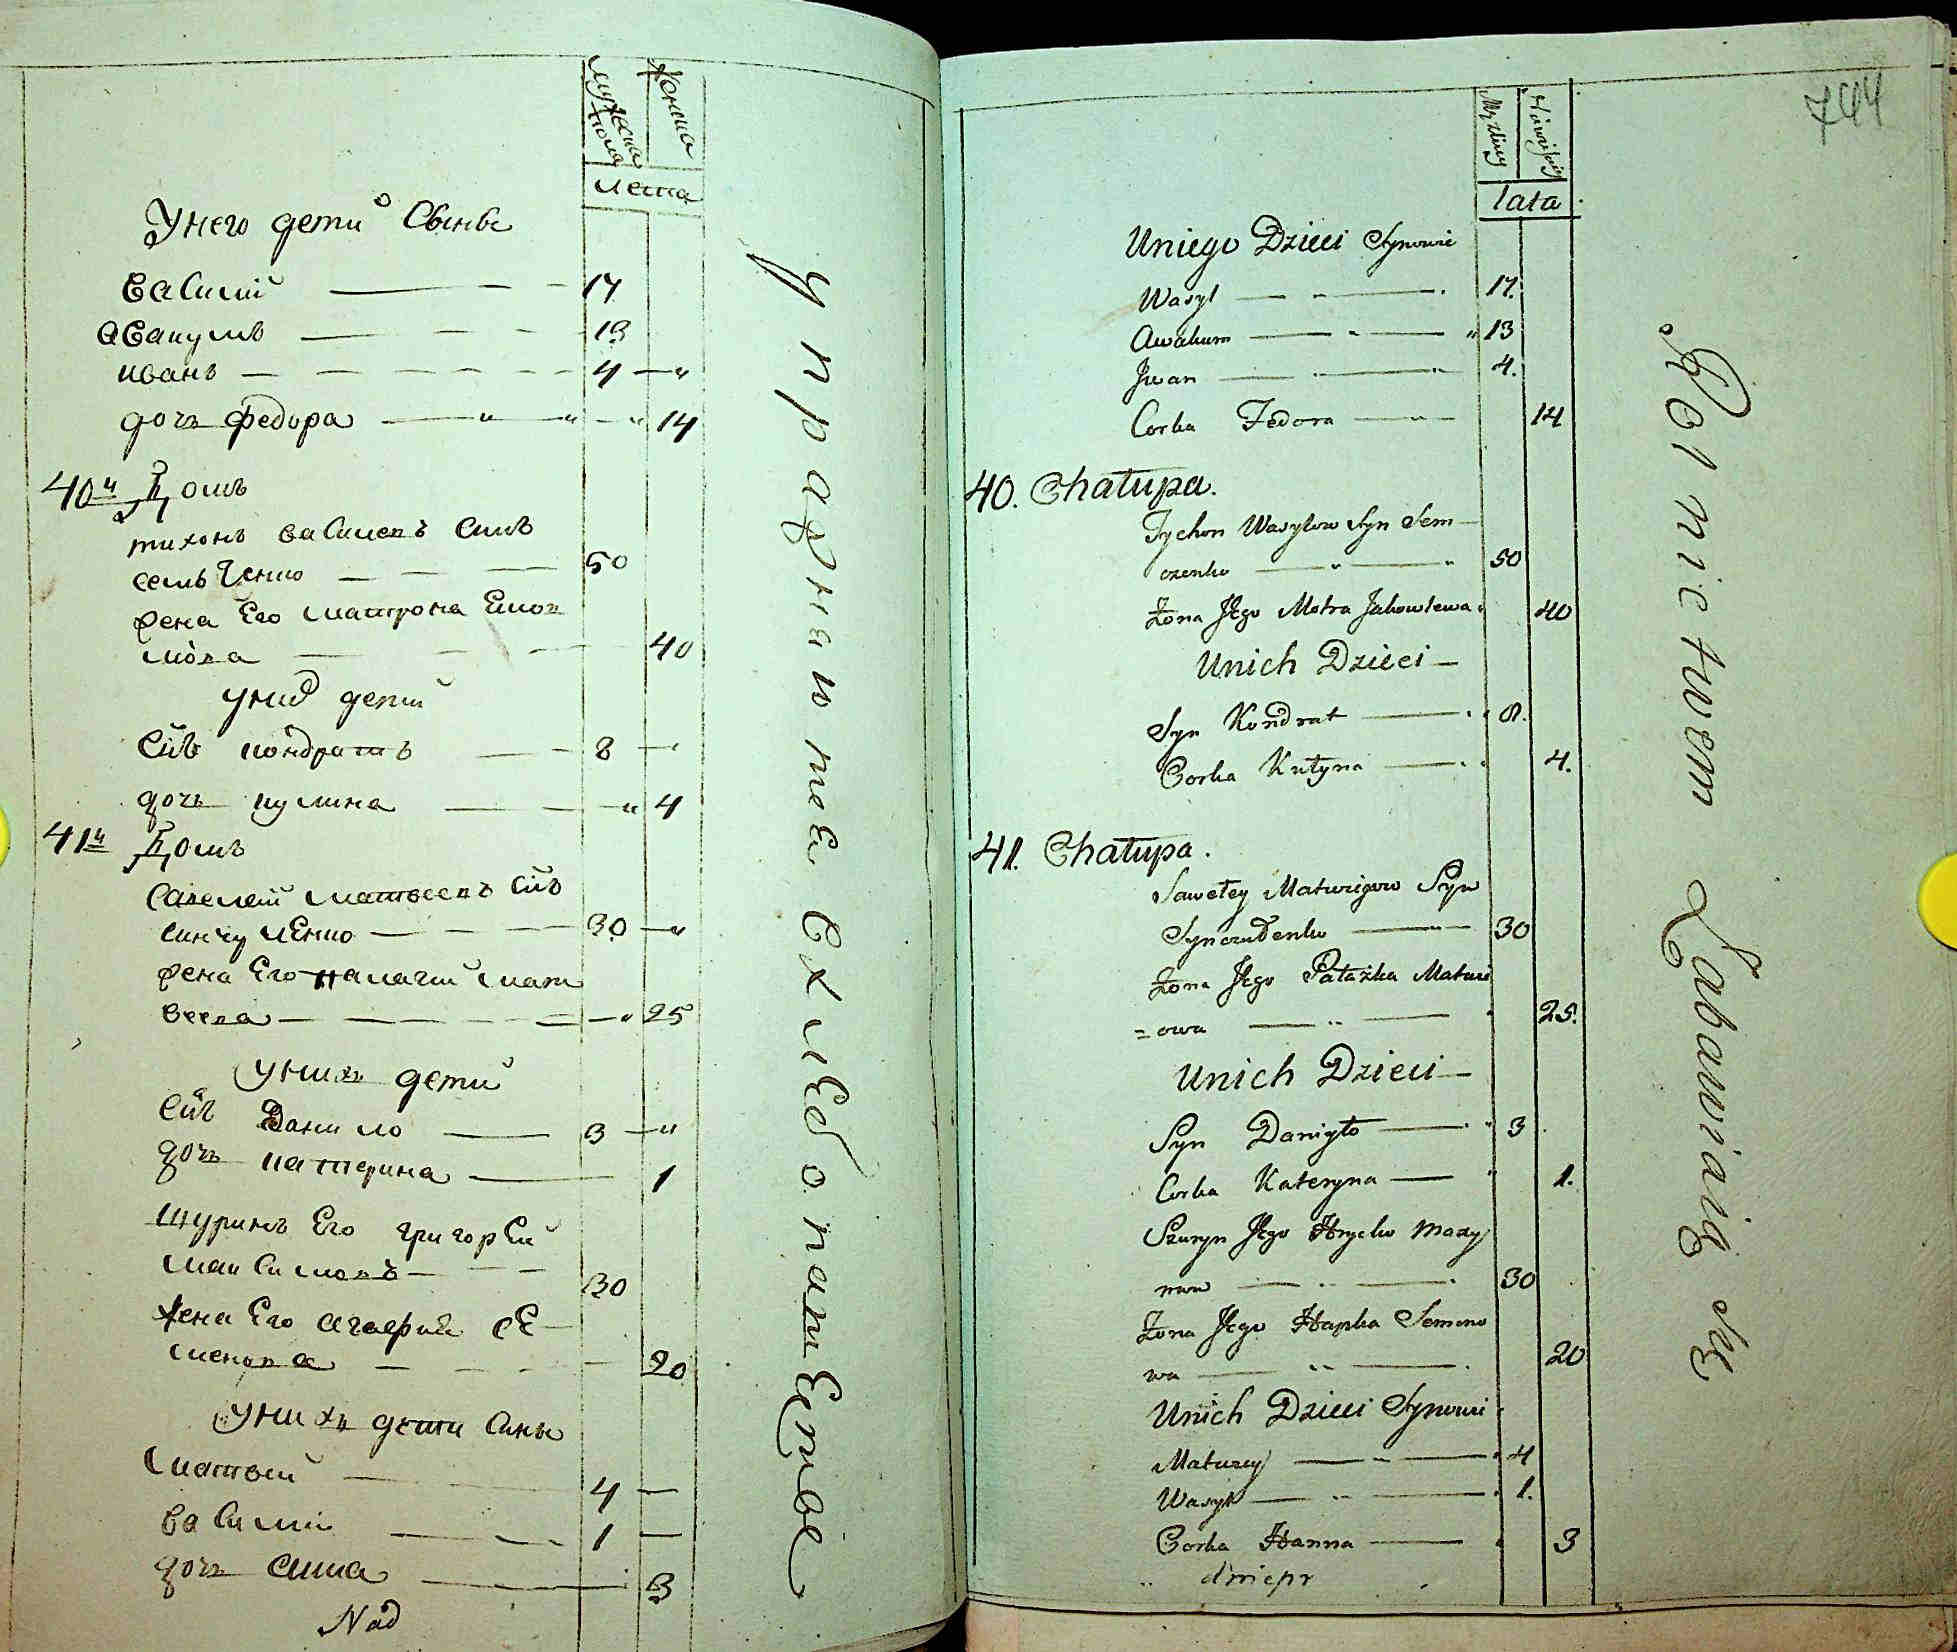 мужеска пола
женска
лета
У него дети Сынве
василий 17
авакумъ 13
иванъ 4
дочь федора 14
40й Домъ
тихонъ василевъ синъ
семъченко 50
жена Его матрона
40
у них дети
синъ кондратъ 8
дочь кулина 4
41й Домъ
савелей матвеевъ синъ
30
жена Его палагия мат
веева 25
у нихъ дети
синъ Данило 3
дочь катерина 1
шуринъ Его григорей
максимовъ 30
жена Его агафия се
менова 20
у нихъ дети сины
матвей 4
василий 1
дочь анна 3
Nad
упражняютца в хлебопашестве
744
Męzkiey
lata
Uniego Dzieci Synowie
Wasyl 17.
Awakum 13
Jwan 4.
Corka Fedora 14
40. Chałupa.
Tychon Wasylow Syn Sem-
czenko 50
Żona Jego Motra Jakowlewa 40
Unich Dzieci
Syn Kondrat 8.
Corka Kułyna 4.
41. Chałupa.
Sawełey Matwiejow Syn
Synczudenko 30
Żona Jego Pałażka Matwi
=owa 25.
Unich Dzieci
Syn Danigło 3
Corka Kateryna 1.
Szuryn Jego Hryćko Maxy
mow 30
Żona Jego Hapka Semeno
wa 20
Unich Dzieci Synowi
Matwey 4
Wasyl 1.
Corka Hanna 3
dniepr
Rolnictwem Zabawiaią się